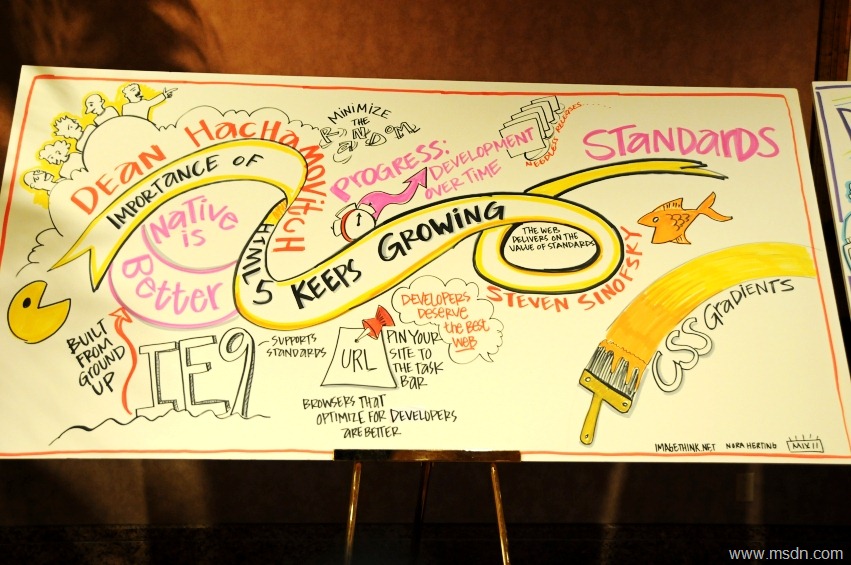 DEAN HACHAMOVITCH
IMPORTANCE OF HTML 5 KEEPS GROWING
NATIVE
is
Better
MINIMIZE
THE
RANDOM
PROGRESS:
DEVELOPMENT
OVER TIME
NEEDLESS RELEASES
STANDARDS
THE WEB
DELIVERS ON THE
VALUE OF STANDARDS
STEVEN SINOFSKY
BUILT
FROM
GROUND
UP
IE9
SUPPORTS
STANDARDS
URL
PIN YOUR
SITE TO
THE TASK
BAR
DEVELOPERS
DESERVE
the BEST
WEB
BROWSERS THAT
OPTIMIZE FOR DEVELOPERS
ARE BETTER
CSS GRADIENTS
IMAGETHINK.NET NORA HERTING MIX11
www.msdn.com